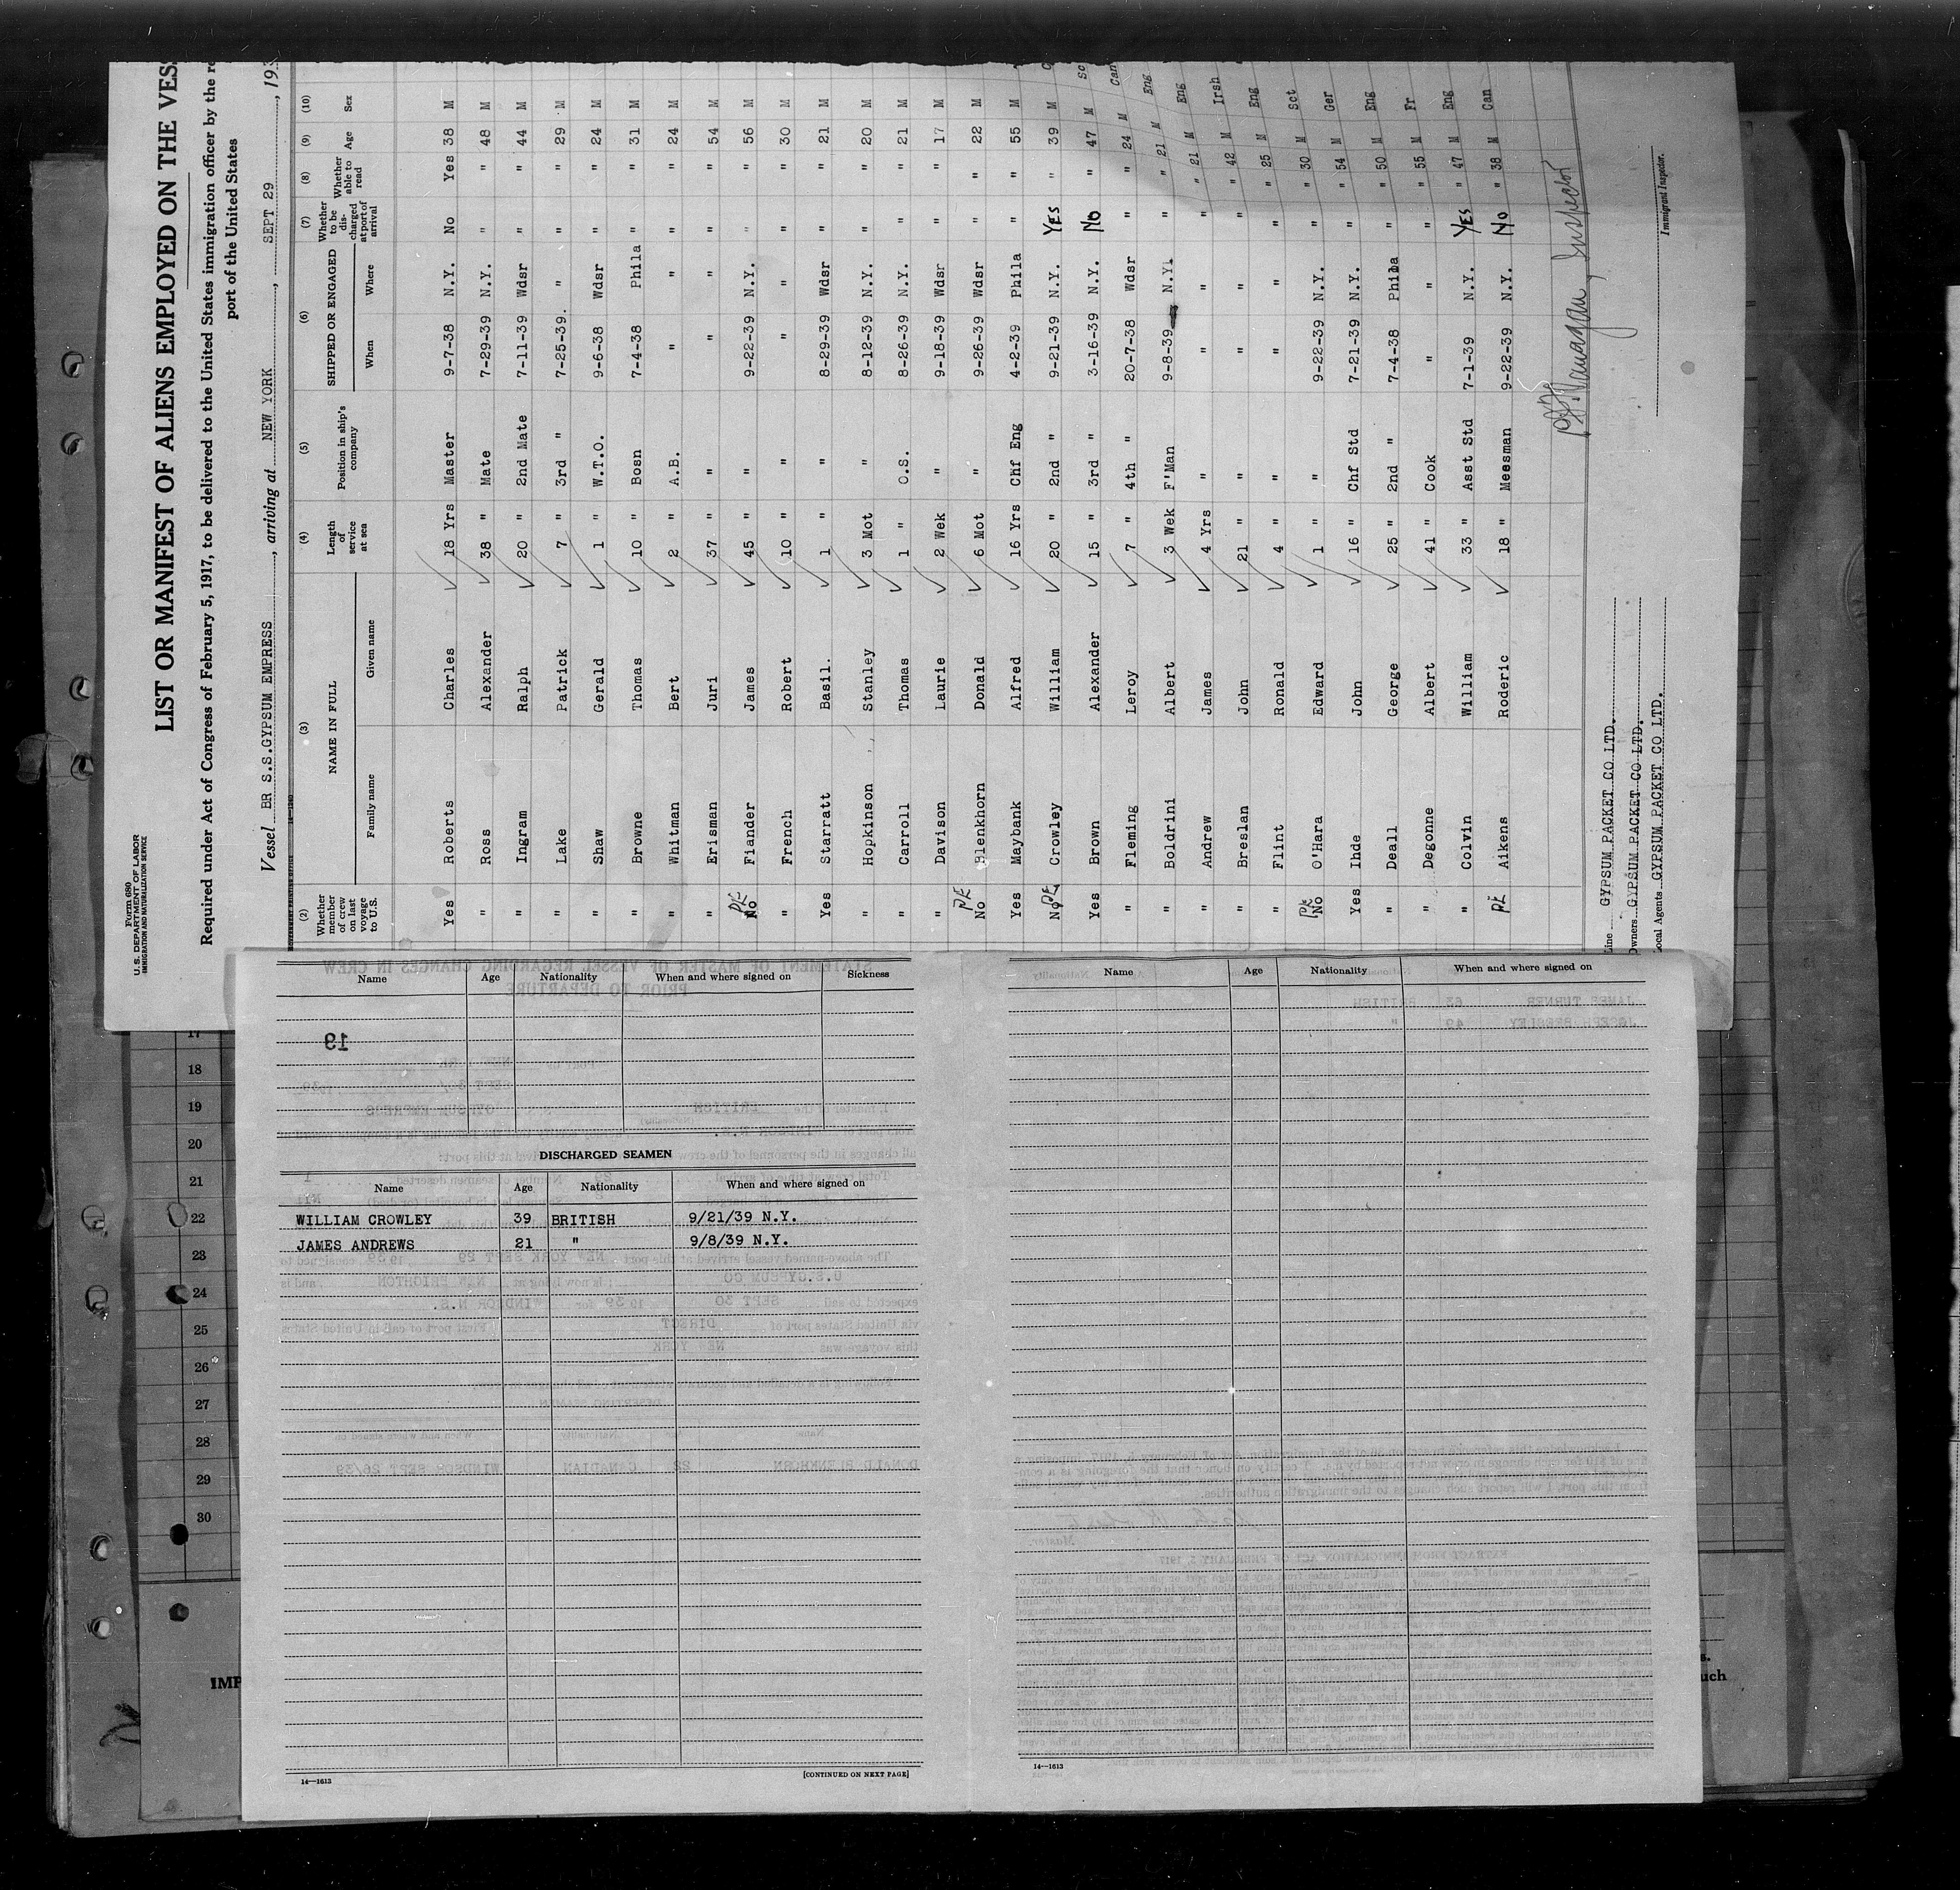 Form 680
U.S. DEPARTMENT OF LABOR
IMMIGRATION AND NATURALIZATION SERVICE
LIST OR MANIFEST OF ALIENS EMPLOYED ON THE VES
Required under Act of Congress of February 5, 1917, to be delivered to the United States immigration officer by the re
port of the United States
Vessel BR S.S.GYPSUM EMPRESS, arriving at NEW YORK, SEPT 29, 193
(2) (3) (4) (5) (6) (7) (8) (9) (10)
Whether member of crew on last voyage to U.S. NAME IN FULL Family name Given name Length of service at sea Position in ship's company SHIPPED OR ENGAGED When Where Whether to be discharged at port of arrival Whether able to read Age Sex
Yes Roberts Charles 18 Yrs Master 9-7-38 N.Y. No Yes 38 M
" Ross Alexander 38 " Mate 7-29-39 N.Y. " " 48 M
" Ingram Ralph 20 " 2nd Mate 7-11-39 Wdsr " " 44 M
" Lake Patrick 7 " 3rd " 7-25-39. " " " 29 M
" Shaw Gerald 1 " W.T.O. 9-6-38 Wdsr " " 24 M
" Browne Thomas 10 " Bosn 7-4-38 Phila " " 31 M
" Whitman Bert 2 " A.B. " " " " 24 M
" Erisman Juri 37 " " " " " " 54 M
PE No Fiander James 45 " " 9-22-39 N.Y. " " 56 M
" French Robert 10 " " " " " " 30 M
Yes Starratt Basil. 1 " " 8-29-39 Wdsr " " 21 M
" Hopkinson Stanley 3 Mot " 8-12-39 N.Y. " " 20 M
" Carroll Thomas 1 " O.S. 8-26-39 N.Y. " " 21 M
" Davison Laurie 2 Wek " 9-18-39 Wdsr " " 17 M
PE No Blenkhorn Donald 6 Mot " 9-26-39 Wdsr " " 22 M
Yes Maybank Alfred 16 Yrs Chf Eng 4-2-39 Phila " " 55 M
No PE Crowley William 20 " 2nd " 9-21-39 N.Y. YES " 39 M
Yes Brown Alexander 15 " 3rd " 3-16-39 N.Y. No " 47 M Sc
" Fleming Leroy 7 " 4th " 20-7-38 Wdsr " " 24 M Can
" Boldrini Albert 3 Wek F'Man 9-8-39 N.Y. " " 21 M Eng
" Andrew James 4 Yrs " " " " " 21 M Eng
" Breslan John 21 " " " " " " 42 M Irsh
" Flint Ronald 4 " " " " " " 25 M Eng
PE No O'Hara Edward 1 " " 9-22-39 N.Y. " " 30 M Sct
Yes Ihde John 16 " Chf Std 7-21-39 N.Y. " " 54 M Ger
" Deall George 25 " 2nd " 7-4-38 Phila " " 50 M Eng
" Degonne Albert 41 " Cook " " " " 55 M Fr
" Colvin William 33 " Asst Std 7-1-39 N.Y. YES " 47 M Eng
PE Aikens Roderic 18 " Messman 9-22-39 N.Y. No " 38 M Can
Inspector
Line GYPSUM PACKET CO LTD.
Owners GYPSUM PACKET CO LTD.
Local Agents GYPSUM PACKET CO LTD.
Immigrant Inspector.
Name Age Nationality When and where signed on Sickness
19
DISCHARGED SEAMEN
Name Age Nationality When and where signed on
WILLIAM CROWLEY 39 BRITISH 9/21/39 N.Y.
JAMES ANDREWS 21 " 9/8/39 N.Y.
14—1613
[CONTINUED ON NEXT PAGE]
Name Age Nationality When and where signed on
14—1613
17
18
19
20
21
22
23
24
25
26
27
28
29
30
IMP
uch